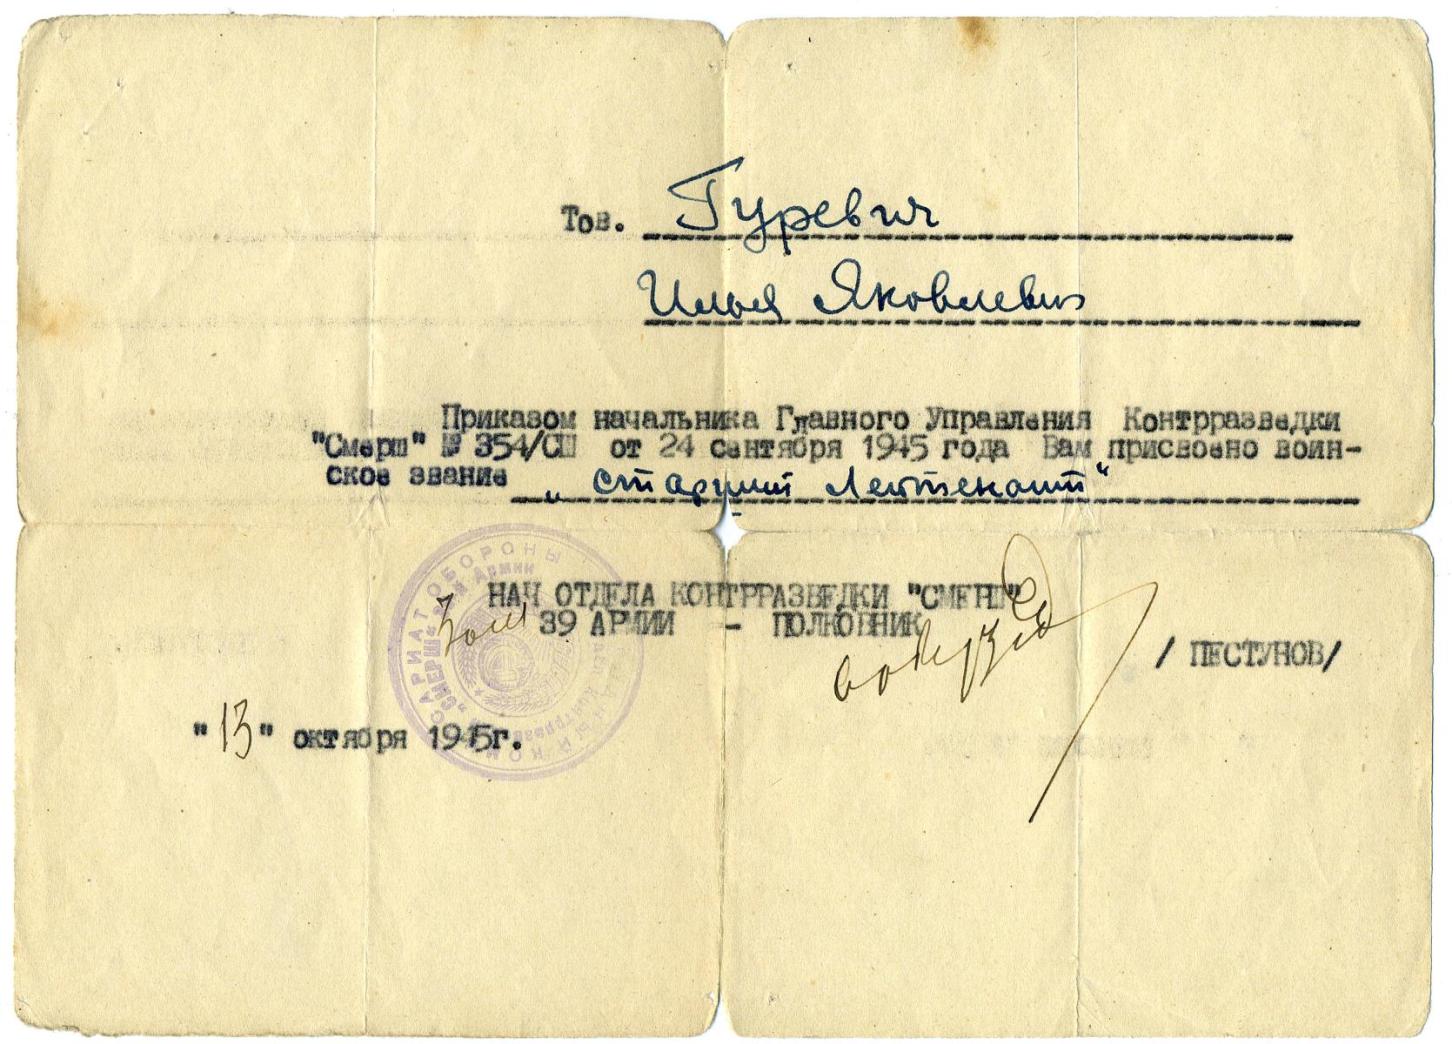 Тов. Гуревич
Илья Яковлевич
Приказом начальника Главного Управления Контрразведки
"Смерш" № 354/СШ от 24 сентября 1945 года Вам присвоено воин-
ское звание „ старший лейтенант“
НАЧ ОТДЕЛА КОНТРРАЗВЕДКИ "СМЕРШ"
Зам 39 АРМИИ - ПОЛКОВНИК
/ ПЕСТУНОВ/
"13" октября 1945г.
НАРОДНЫЙ КОМИССАРИАТ ОБОРОНЫ
„СМЕРШ“ Армии